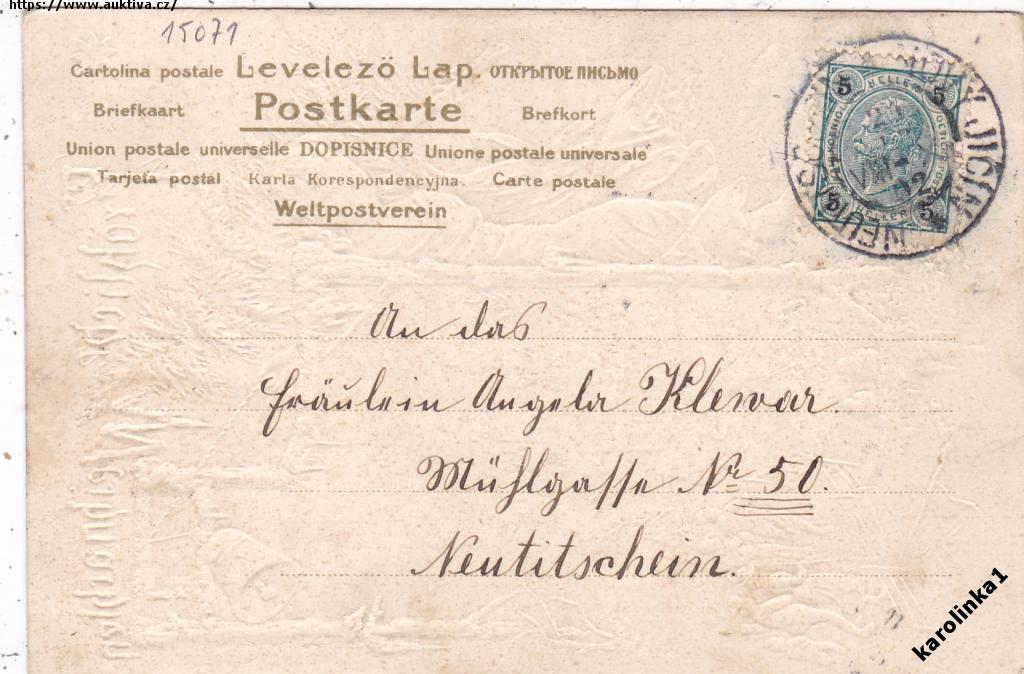 https://www.auktiva.cz/
15071
Cartolina postale Levelezö Lap. ОТКРЫТОЕ ПИСЬМО
Briefkaart Postkarte Brefkort
Union postale universelle DOPISNICE Unione postale universale
Tarjeta postal Karta Korespondencyjna. Carte postale
Weltpostverein
5 HELLER 5
5 HELLER 5
JIČÍN
An das
Fräulein Angela Klewar.
Mühlgasse Nr 50.
Neutitschein.
Fröhliche Weihnachten
karolinka1